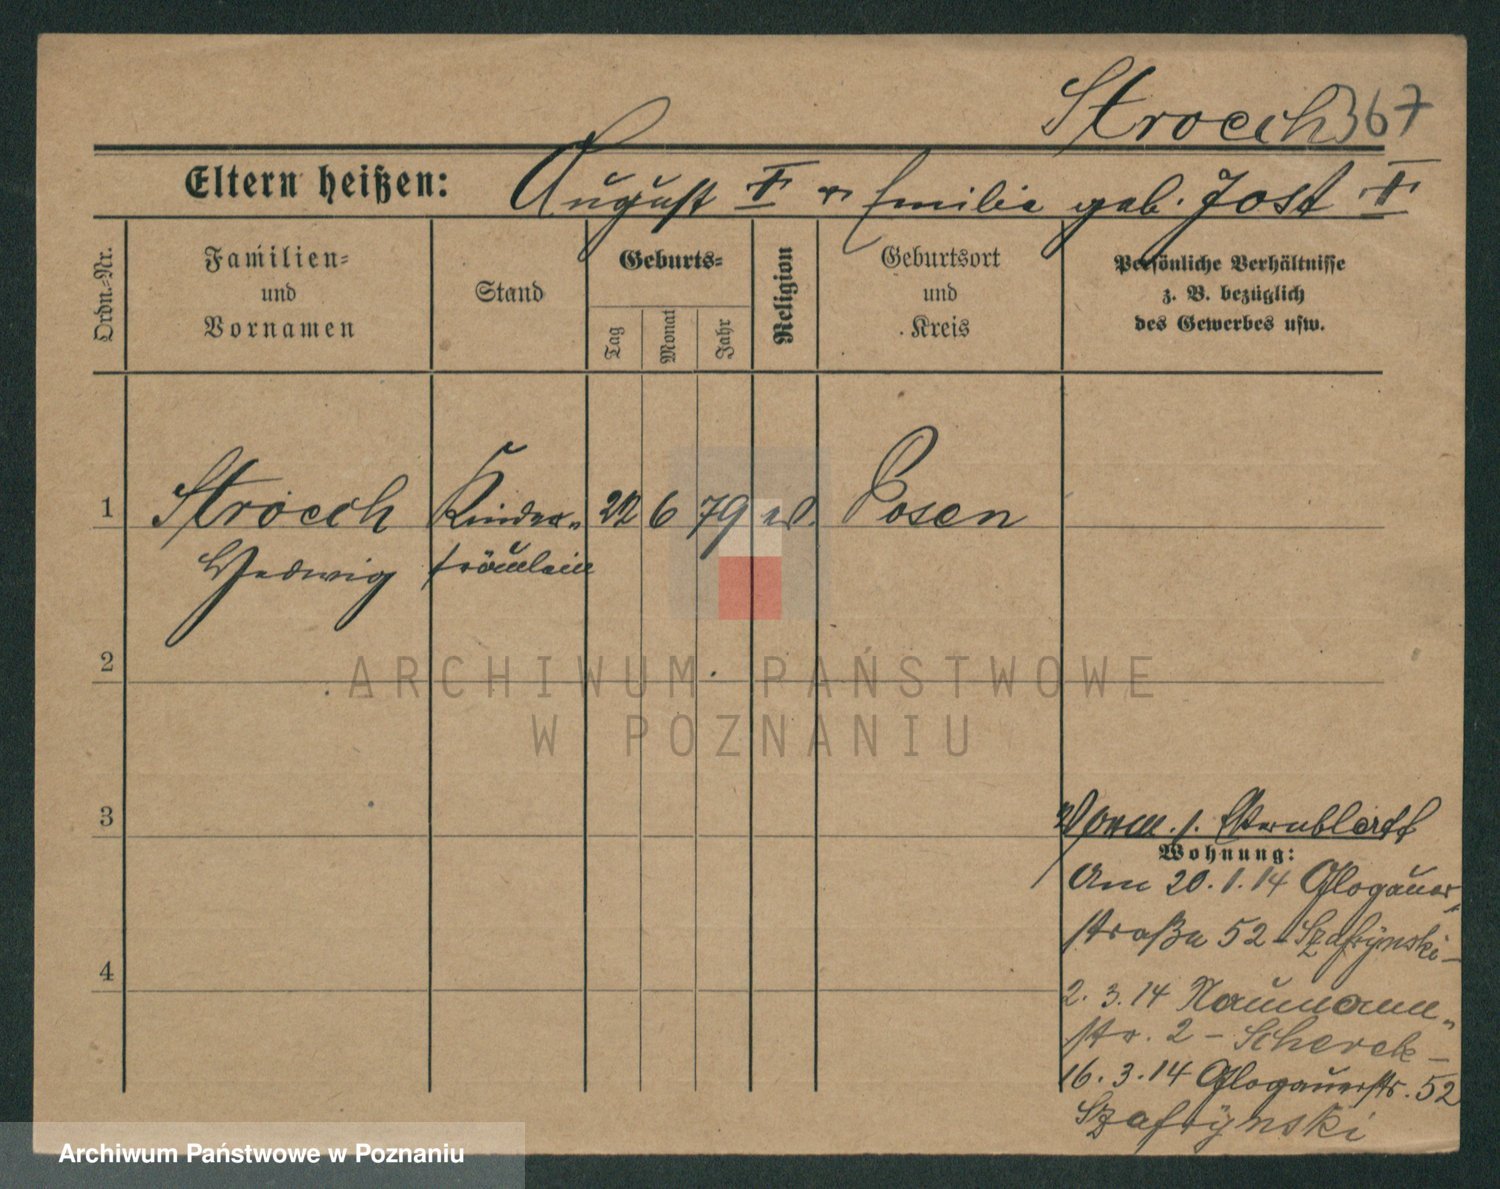 Stroech 367
Eltern heißen: August † u Emilie geb. Jost †
Ordn.-Nr.
Familien-
und
Vornamen
Stand
Geburts-
Tag
Monat
Jahr
Religion
Geburtsort
und
Kreis
Persönliche Verhältnisse
z. B. bezüglich
des Gewerbes usw.
1 Stroech Kinder- 22 6 79 Posen
Hedwig fräulein
2
3
4
Wohnung:
Am 20.1.14 Glogauer-
straße 52 - Szafrÿnski -
2.3.14 Naumann-
str. 2 - Scherek -
16.3.14 Glogauerstr. 52
Szafrÿnski
ARCHIWUM PAŃSTWOWE
W POZNANIU
Archiwum Państwowe w Poznaniu